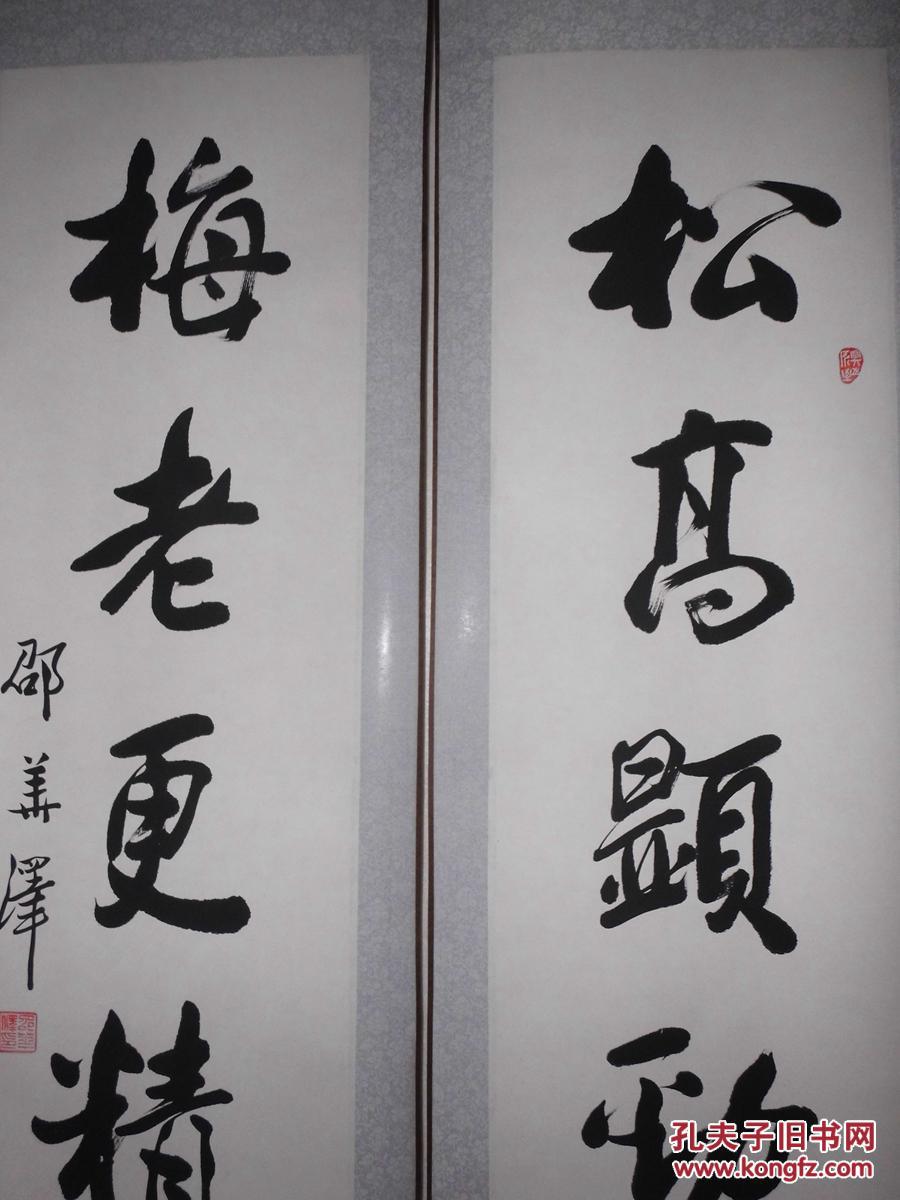 松高顕勁
梅老更精
邵華澤
孔夫子旧书网
www.kongfz.com